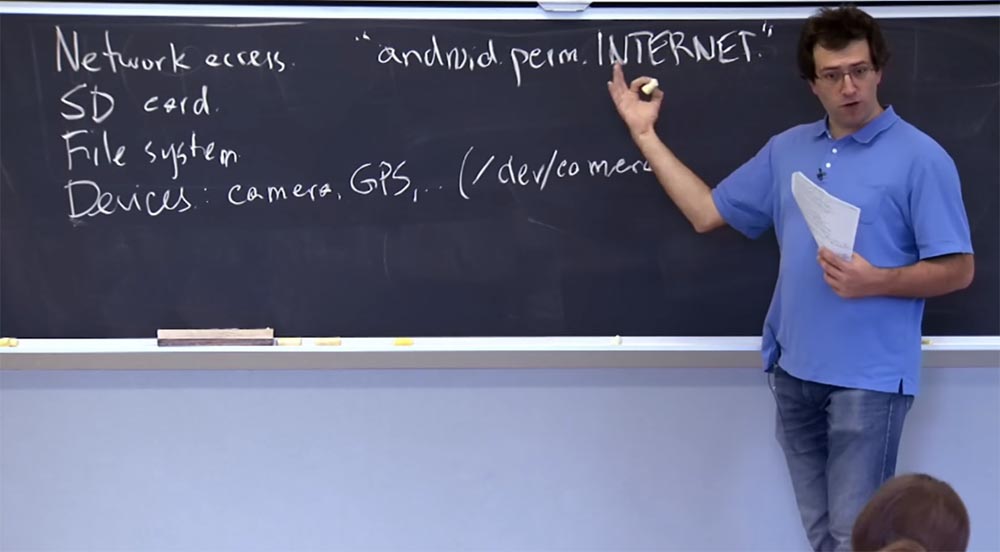 Network access. "android.perm.INTERNET."
SD card.
File system
Devices: camera, GPS, .. (/dev/camera